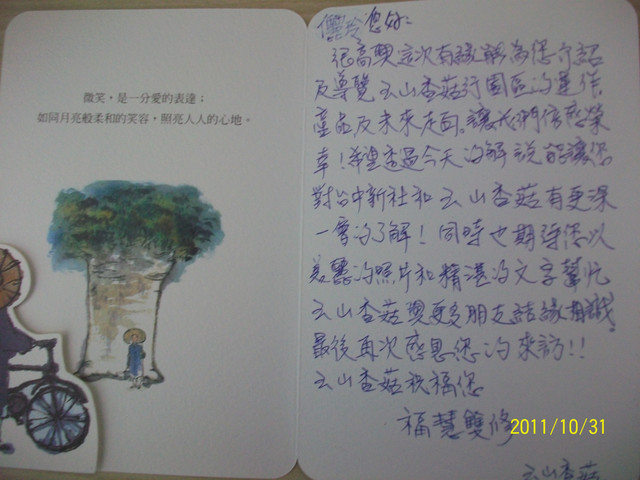 微笑，是一分愛的表達；
如同月亮般柔和的笑容，照亮人人的心地。
您好：
很高興這次有緣能為您介紹
及導覽云山香菇行園區的運作，
產品及未來走向。讓我們倍感榮
幸！希望透過今天的解說能讓您
對台中新社和云山香菇有更深
一層的了解！同時也期待您以
美麗的照片和精湛的文字幫忙
云山香菇與更多朋友結緣相識。
最後再次感恩您的來訪！！
云山香菇祝福您
福慧雙修
2011/10/31
云山香菇